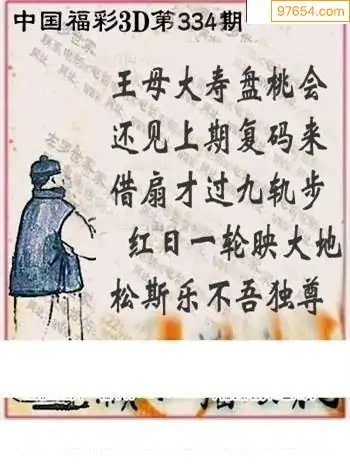 97654.com
中国福彩3D第334期
王母大寿盘桃会
还见上期复码来
借扇才过九轨步
红日一轮映大地
松斯乐不吾独尊